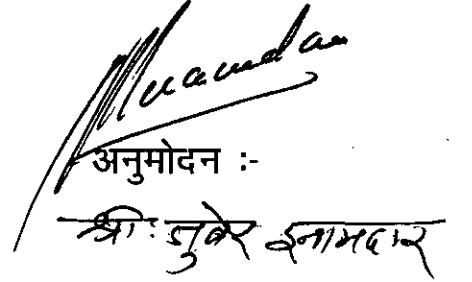 अनुमोदन :-
श्री: जुबेर इनामदार